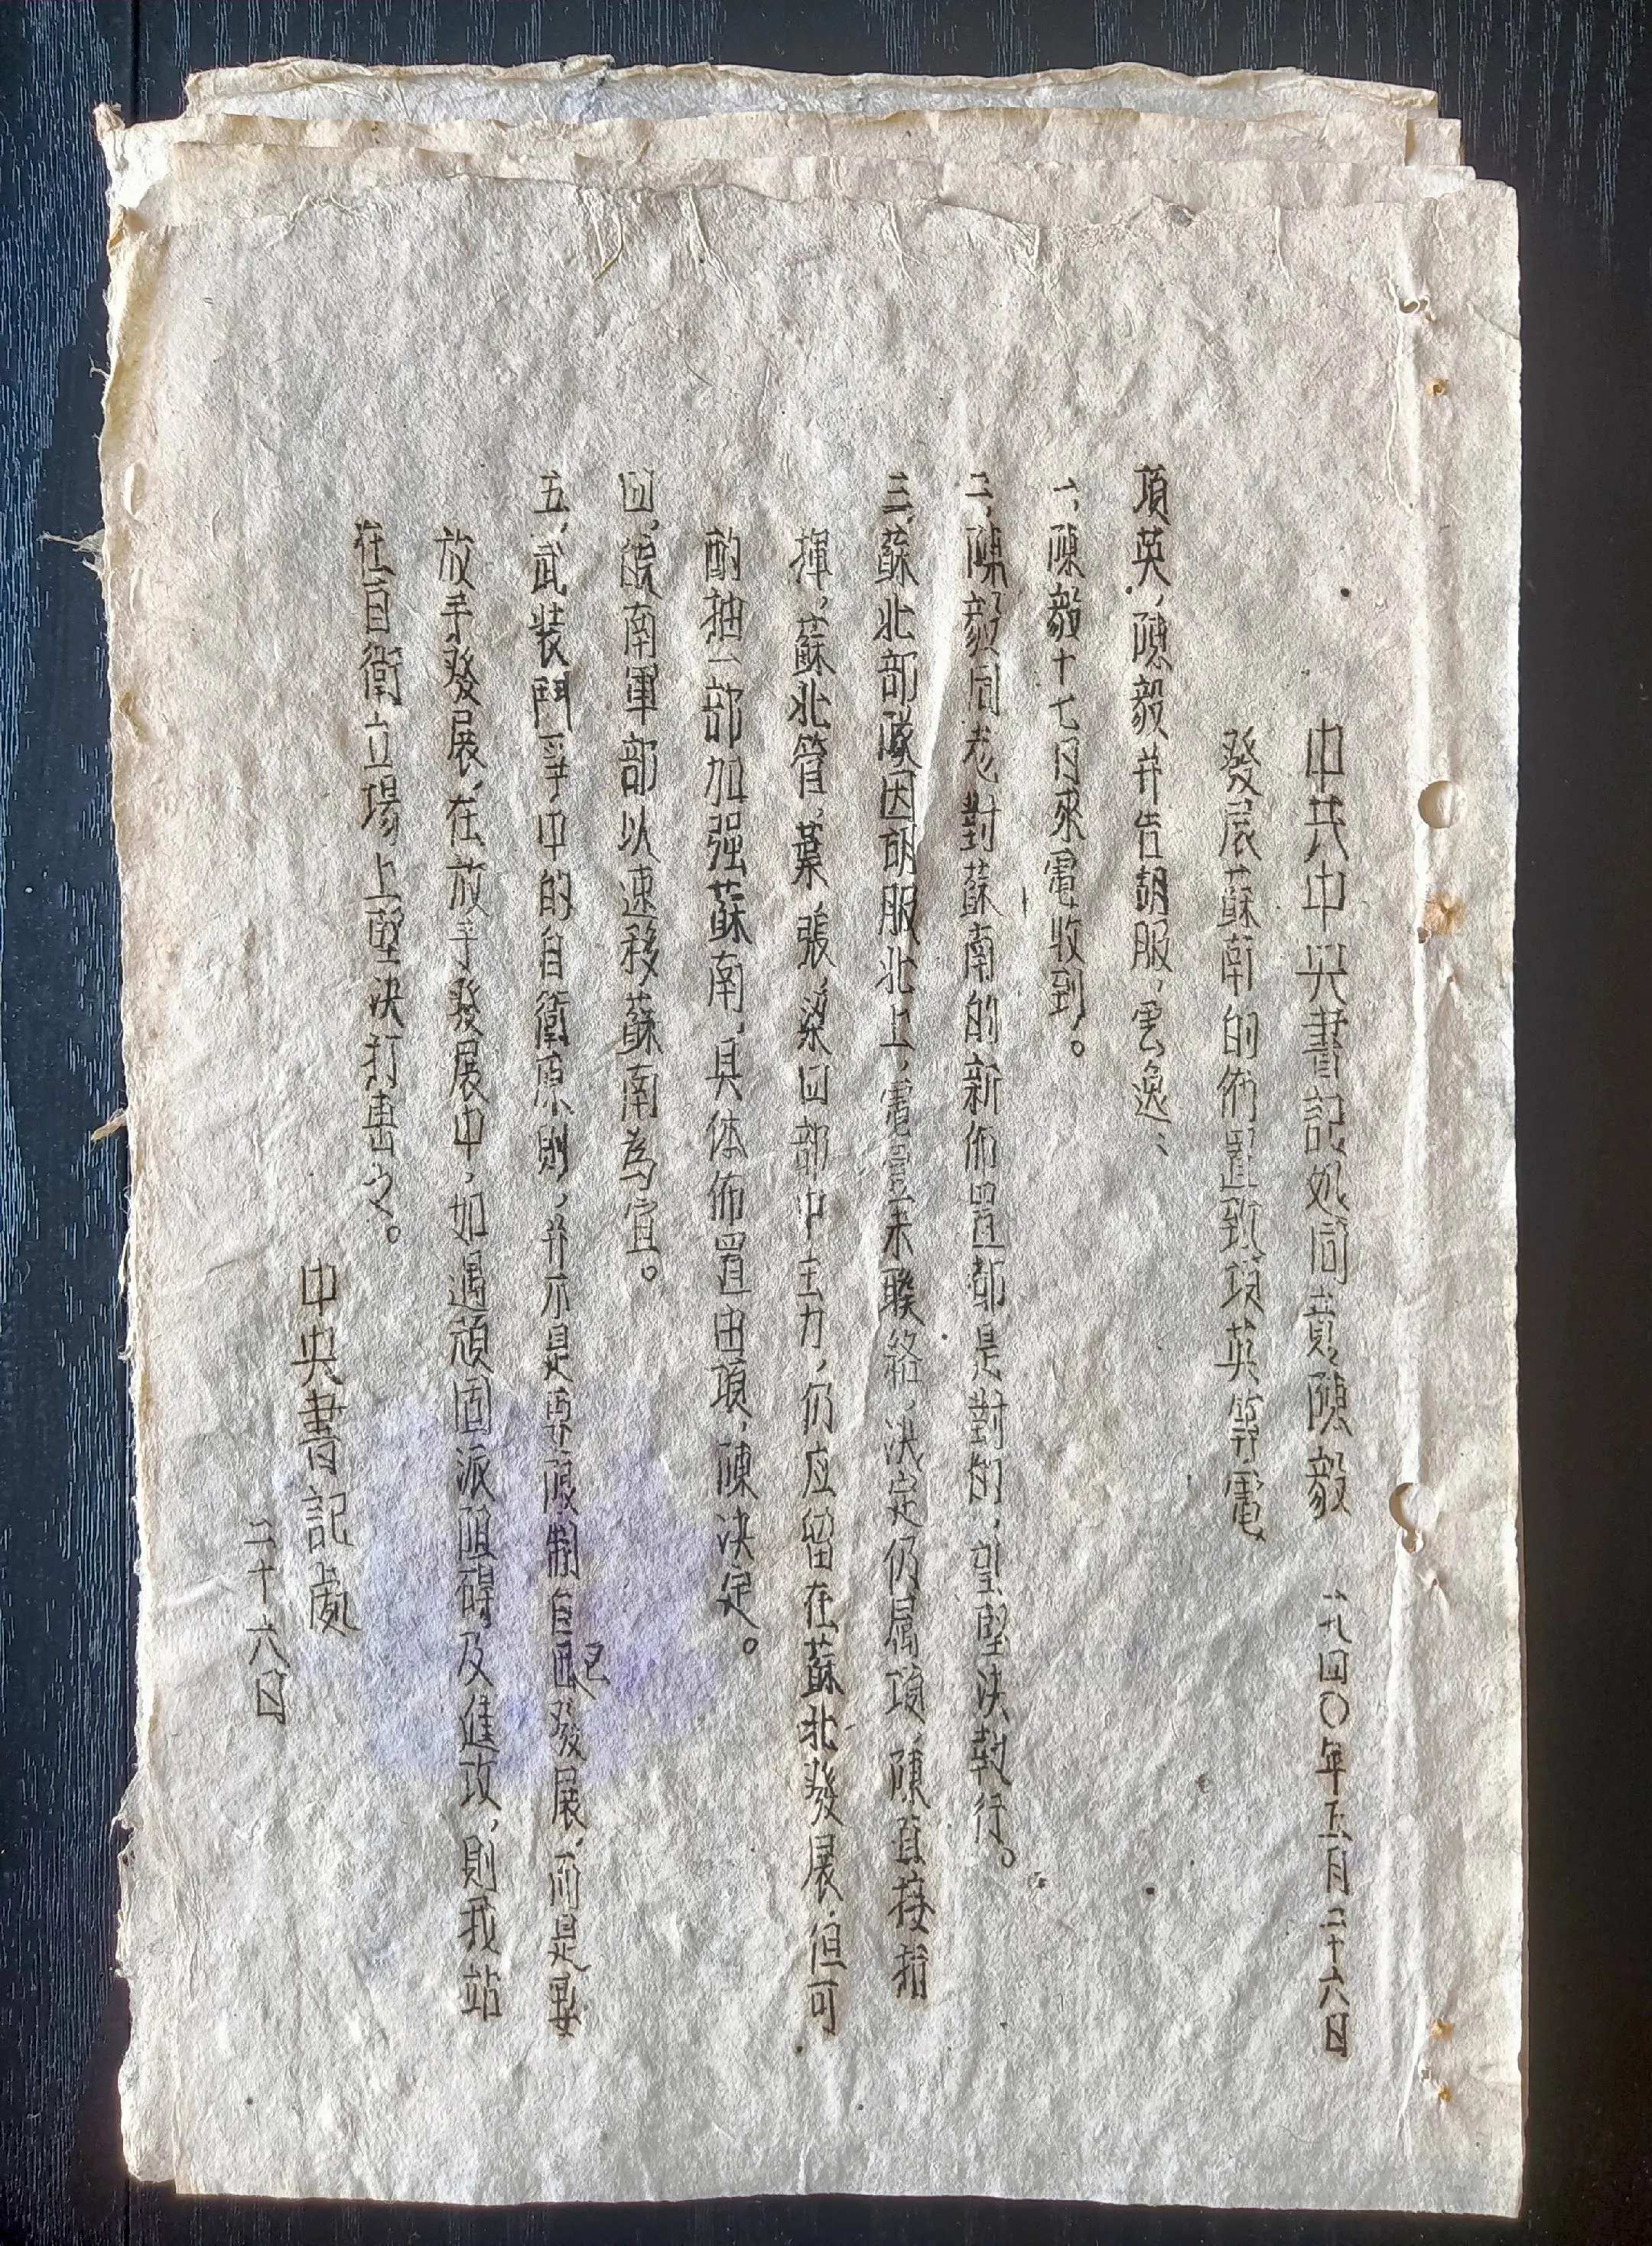 中共中央書記処同意陳毅
一九四〇年五月二十六日
發展蘇南的佈置致項英等電
項英，陳毅并告胡服，雲逸：
一、陳毅十七日來電收到。
二、陳毅同志對蘇南的新佈置都是對的，望堅決執行。
三、蘇北部隊因胡服北上，電臺未聯絡，決定仍属項，陳直接指
揮，蘇北管，葉，張，梁四部中主力，仍应留在蘇北發展，但可
酌抽一部加强蘇南，具体佈置由項，陳決定。
四、皖南軍部以速移蘇南為宜。
五、武裝鬥爭中的自衛原則，并不是要限制自己發展，而是要
放手發展，在放手發展中，如遇頑固派阻碍及進攻，則我站
在自衛立場上堅決打擊之。
中央書記處
二十六日